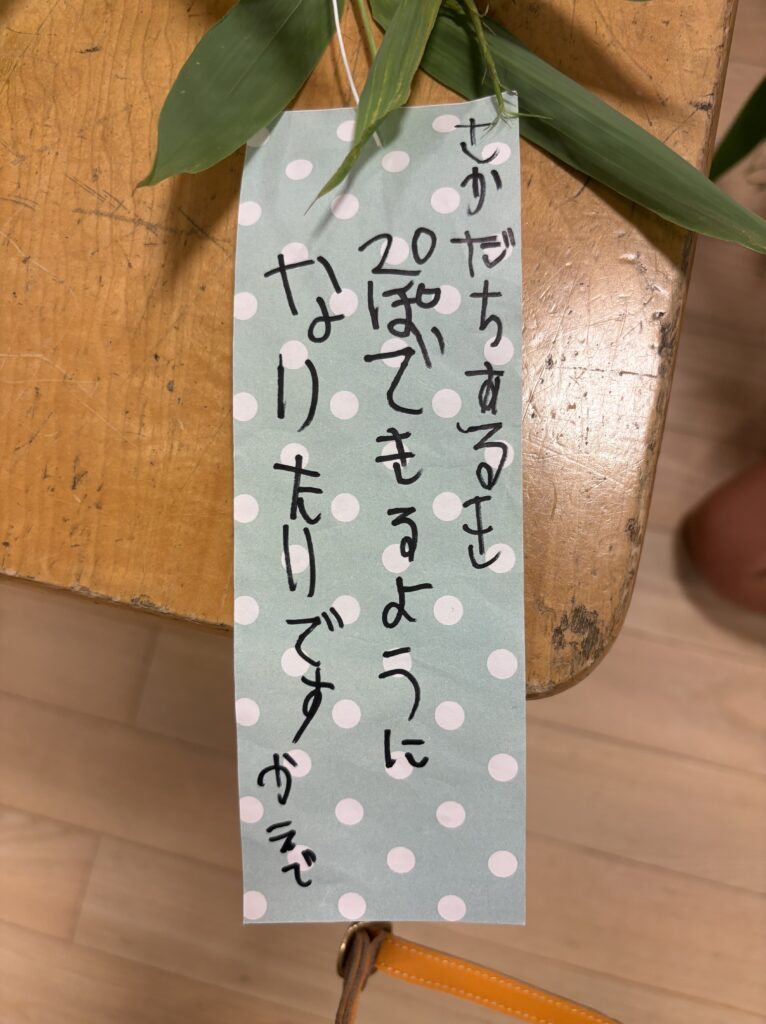 さかだちするき
20ぽできるように
なりたいです かえで